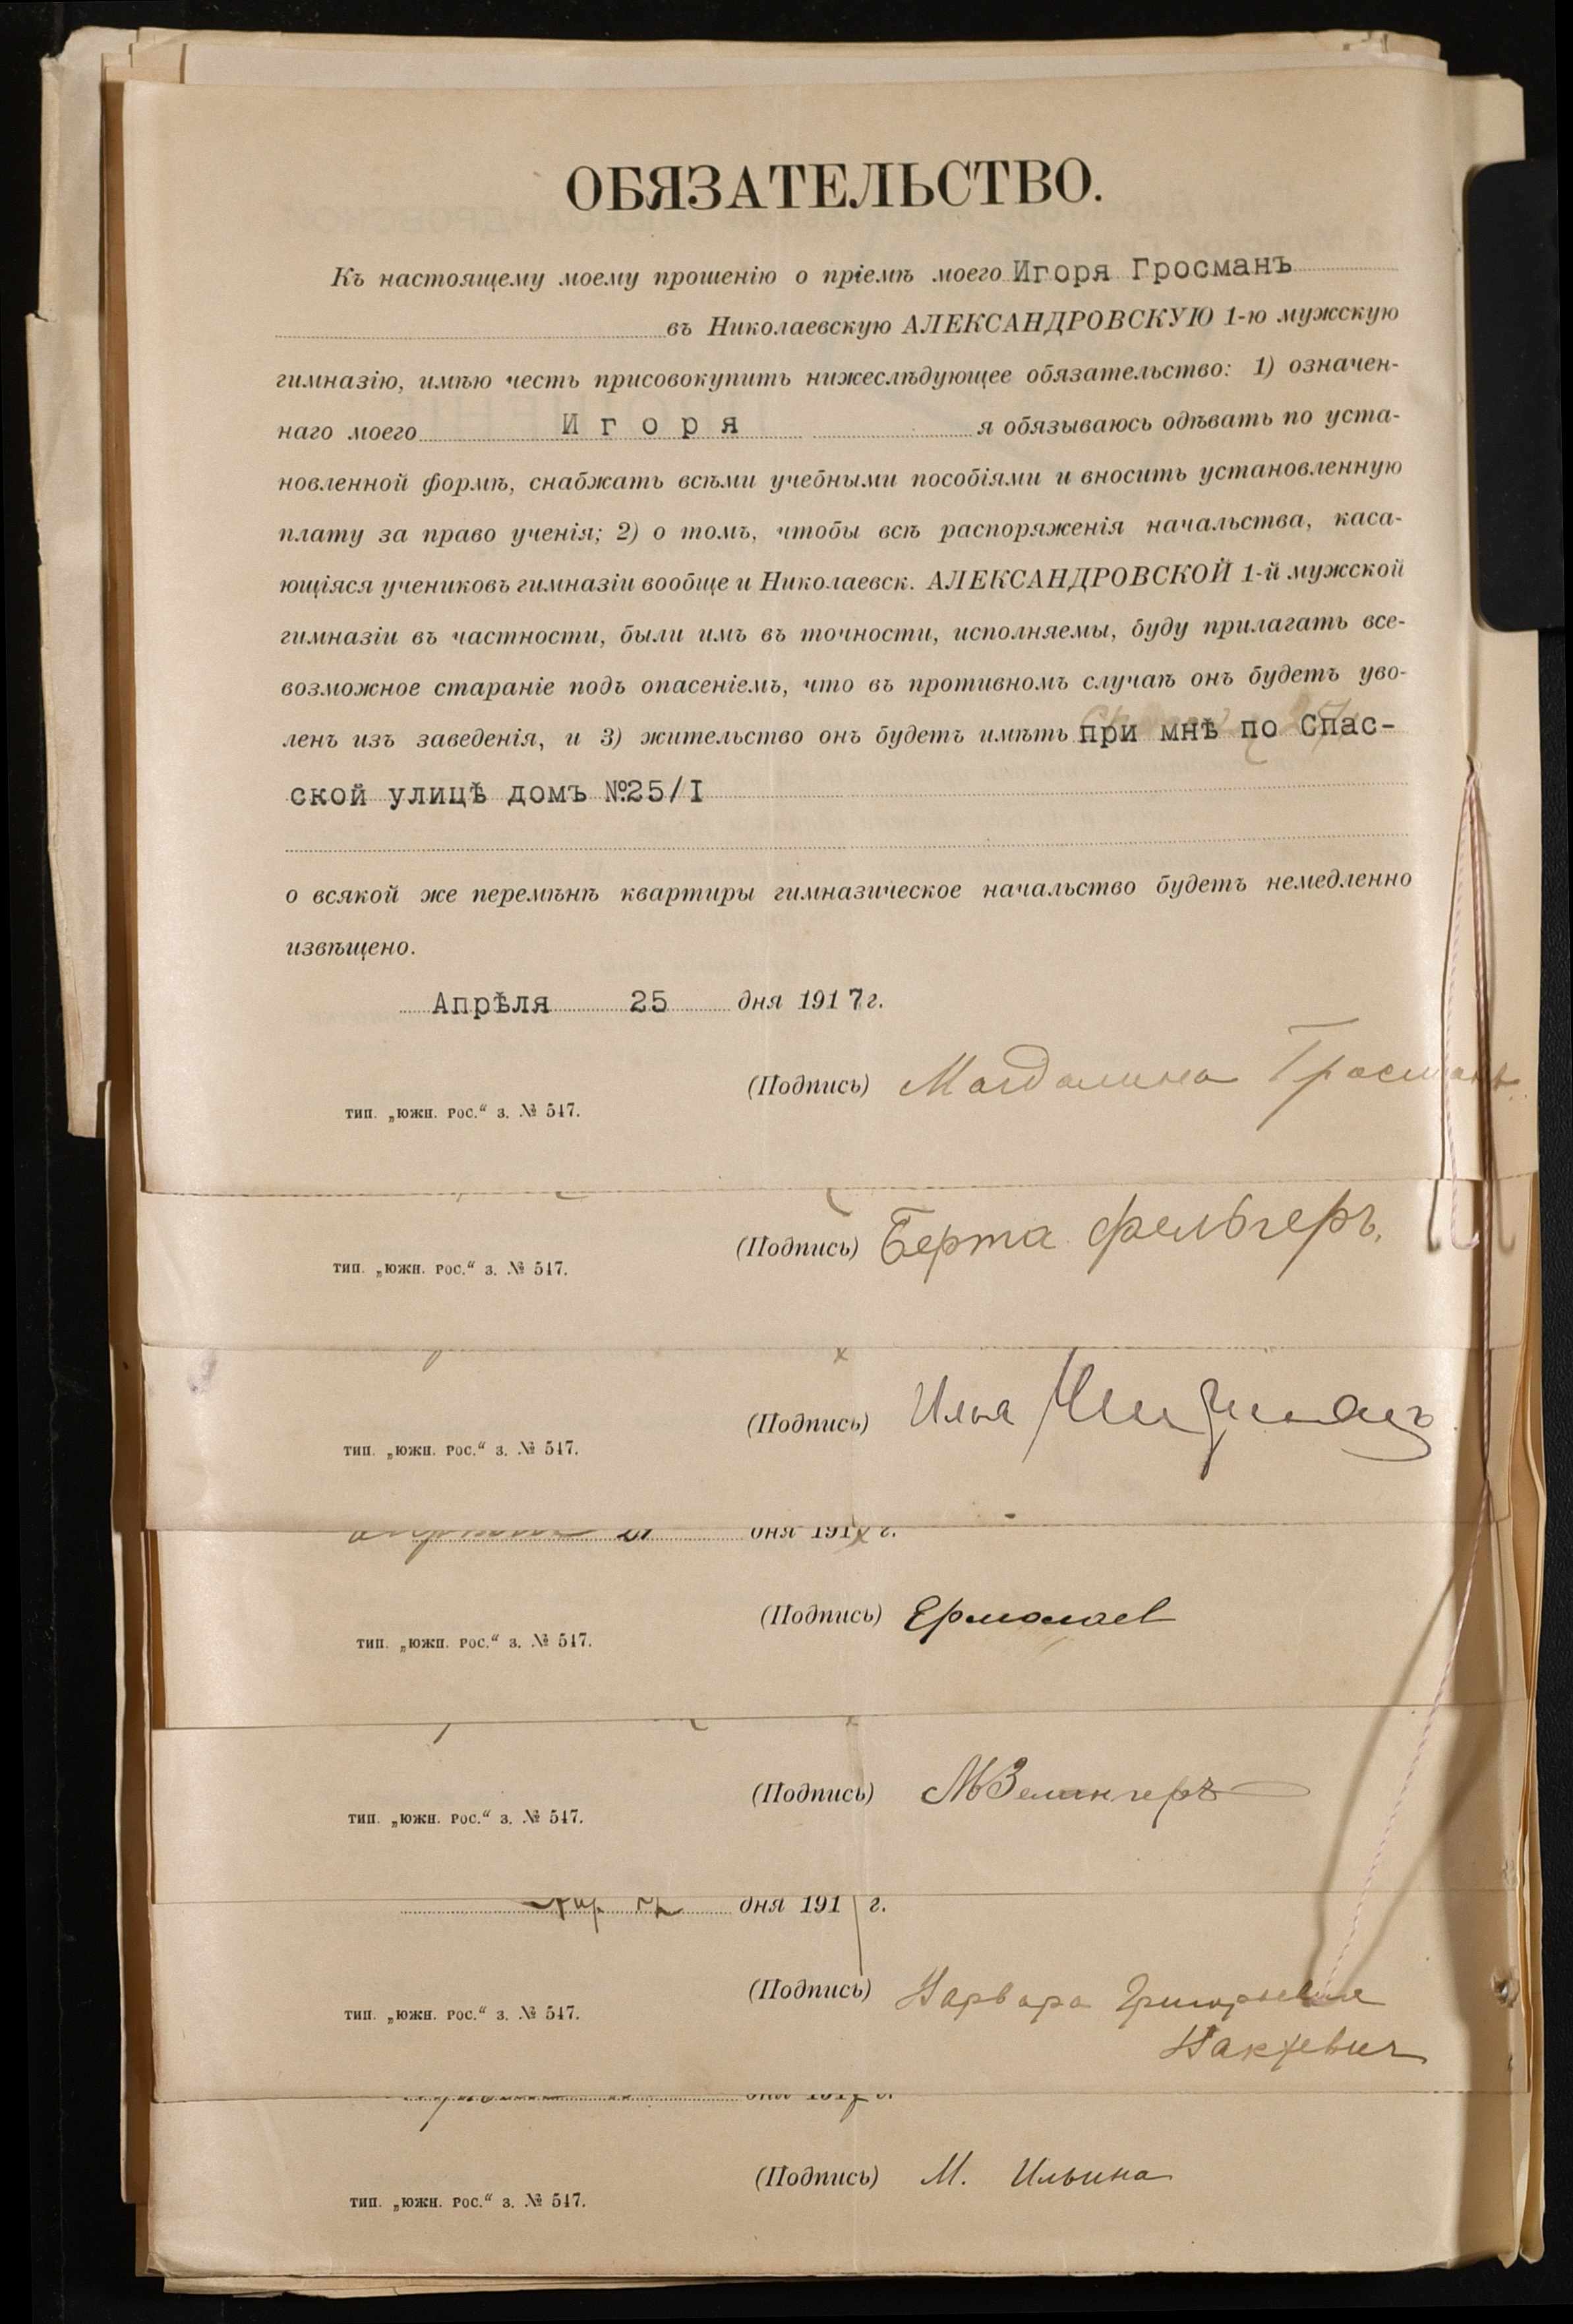 ОБЯЗАТЕЛЬСТВО.
Къ настоящему моему прошенію о пріемѣ моего Игоря Гросманъ
въ Николаевскую АЛЕКСАНДРОВСКУЮ 1-ю мужскую
гимназію, имѣю честь присовокупить нижеслѣдующее обязательство: 1) означен-
наго моего Игоря я обязываюсь одѣвать по уста-
новленной формѣ, снабжать всѣми учебными пособіями и вносить установленную
плату за право ученія; 2) о томъ, чтобы всѣ распоряженія начальства, каса-
ющіяся учениковъ гимназіи вообще и Николаевск. АЛЕКСАНДРОВСКОЙ 1-й мужской
гимназіи въ частности, были имъ въ точности, исполняемы, буду прилагать все-
возможное стараніе подъ опасеніемъ, что въ противномъ случаѣ онъ будетъ уво-
ленъ изъ заведенія, и 3) жительство онъ будетъ имѣть при мнѣ по Спас-
ской улицѣ домъ №25/I
о всякой же перемѣнѣ квартиры гимназическое начальство будетъ немедленно
извѣщено.
Апрѣля 25 дня 1917 г.
(Подпись) Магдалина Гросманъ
тип. „южн. рос.“ з. № 547.
(Подпись) Берта Фельгеръ.
тип. „южн. рос.“ з. № 547.
(Подпись) Илья
тип. „южн. рос.“ з. № 547.
дня 191 г.
(Подпись) Ермолаев
тип. „южн. рос.“ з. № 547.
(Подпись) М Зелингеръ
тип. „южн. рос.“ з. № 547.
дня 191 г.
(Подпись) Варвара Григорьевна
тип. „южн. рос.“ з. № 547.
(Подпись) М. Ильина
тип. „южн. рос.“ з. № 547.